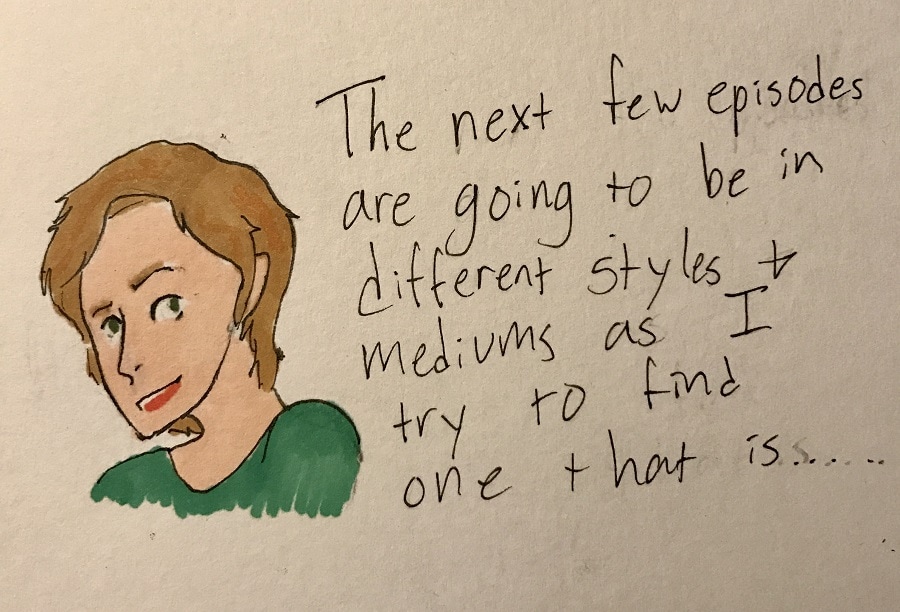 The next few episodes
are going to be in
different styles +
mediums as I
try to find
one that is......